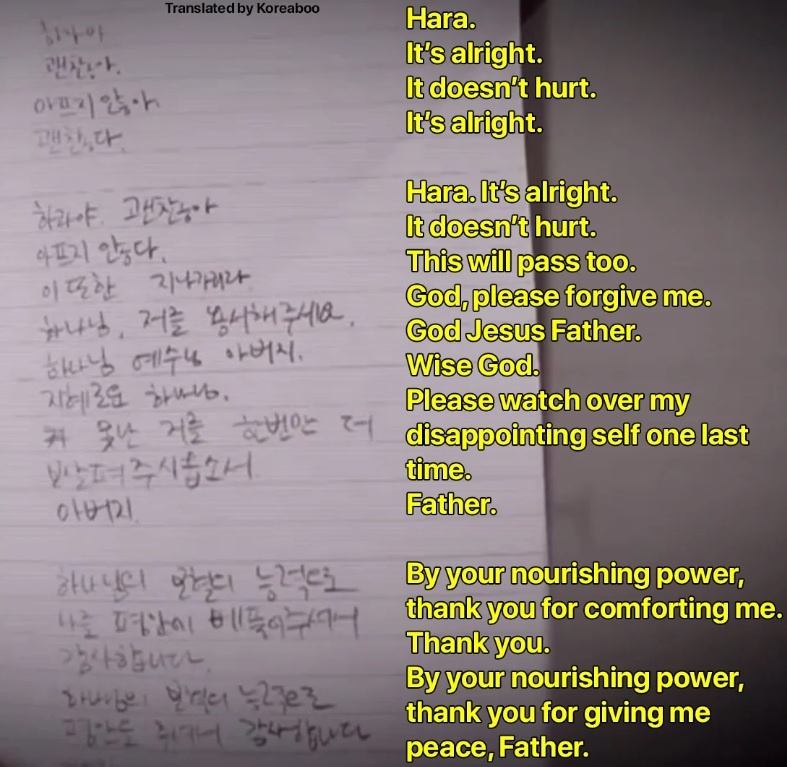 Translated by Koreaboo
하라야
괜찮아.
아프지 않아
괜찮다.
하라야 괜찮아
아프지 않다.
이 또한 지나가리라
하나님, 저를 용서해주세요.
하나님 예수님 아버지.
지혜로운 하나님.
못난 저를 한번만 더
보살펴주시옵소서
아버지
하나님의 보혈의 능력으로
나를 평안히
감사합니다.
하나님의 보혈의 능력으로
평안을 감사합니다
Hara.
It's alright.
It doesn't hurt.
It's alright.
Hara. It's alright.
It doesn't hurt.
This will pass too.
God, please forgive me.
God Jesus Father.
Wise God.
Please watch over my
disappointing self one last
time.
Father.
By your nourishing power,
thank you for comforting me.
Thank you.
By your nourishing power,
thank you for giving me
peace, Father.